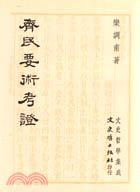 欒調甫著
齊民要術考證
文史哲學集成
文史哲出版社印行